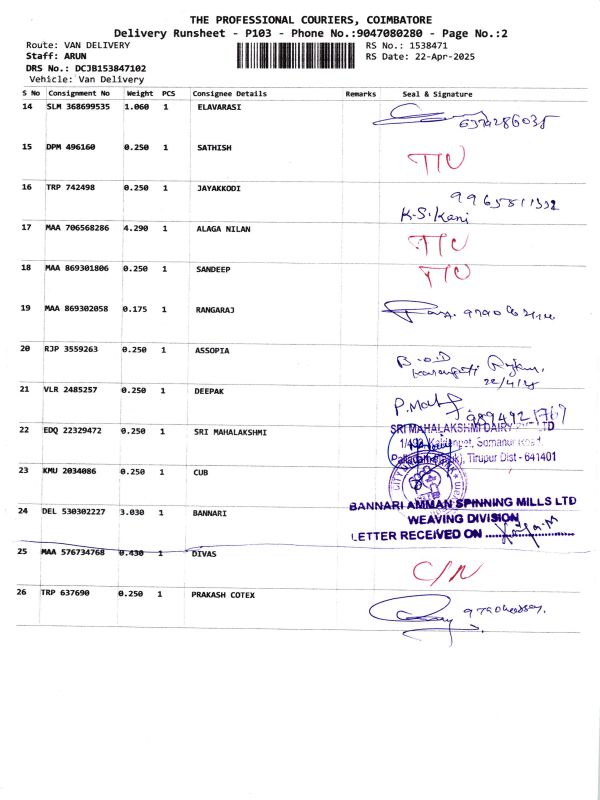 THE PROFESSIONAL COURIERS, COIMBATORE
Delivery Runsheet - P103 - Phone No.:9047080280 - Page No.:2
Route: VAN DELIVERY RS No.: 1538471
Staff: ARUN RS Date: 22-Apr-2025
DRS No.: DCJB153847102
Vehicle: Van Delivery
S No Consignment No Weight PCS Consignee Details Remarks Seal & Signature
14 SLM 368699535 1.060 1 ELAVARASI
6374286035
15 DPM 496160 0.250 1 SATHISH
16 TRP 742498 0.250 1 JAYAKKODI
K.S.Kani
17 MAA 706568286 4.290 1 ALAGA NILAN
18 MAA 869301806 0.250 1 SANDEEP
19 MAA 869302058 0.175 1 RANGARAJ
20 RJP 3559263 0.250 1 ASSOPIA
B.O.D
22/4/25
21 VLR 2485257 0.250 1 DEEPAK
9894921767
22 EDQ 22329472 0.250 1 SRI MAHALAKSHMI
SRI MAHALAKSHMI DAIRY LTD
Tirupur Dist - 641401
23 KMU 2034086 0.250 1 CUB
24 DEL 530302227 3.030 1 BANNARI
BANNARI AMMAN SPINNING MILLS LTD
WEAVING DIVISION
LETTER RECEIVED ON
25 MAA 576734768 0.430 1 DIVAS
C/N
26 TRP 637690 0.250 1 PRAKASH COTEX